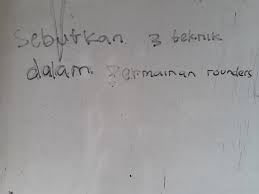 Sebutkan 3 teknik
dalam Permainan rounders